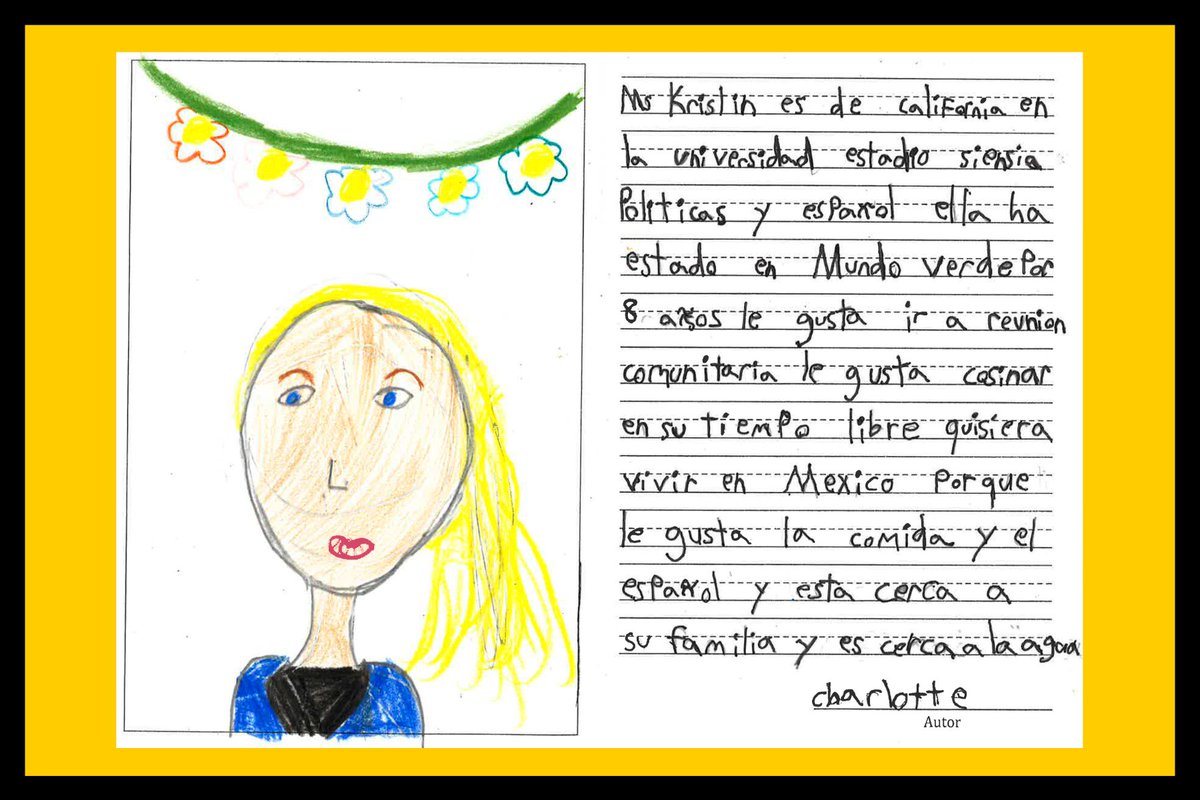 Ms Kristin es de california en
la universidad estadio siensia
Politicas y español ella ha
estado en Mundo verde Por
8 años le gusta ir a reunion
comunitaria le gusta cosinar
en su tiempo libre quisiera
vivir en Mexico Porque
le gusta la comida y el
español y esta cerca a
su familia y es cerca a la agua
charlotte
Autor